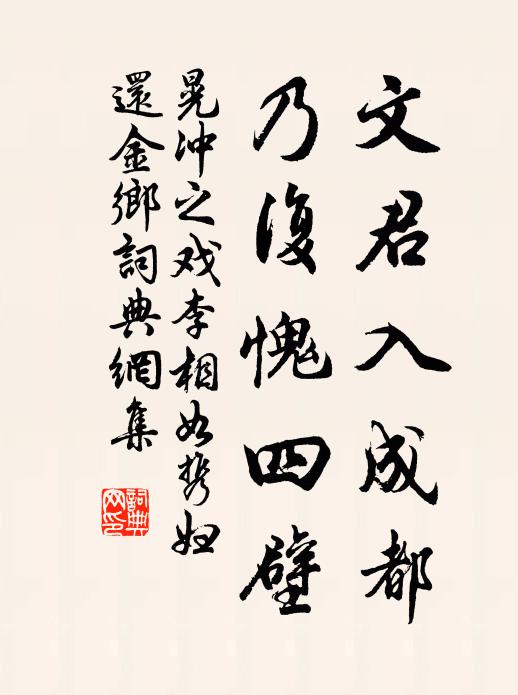 文君入成都
乃復愧四壁
晁沖之戏李相如携妞
還金鄉詞典網集
詞典
网印